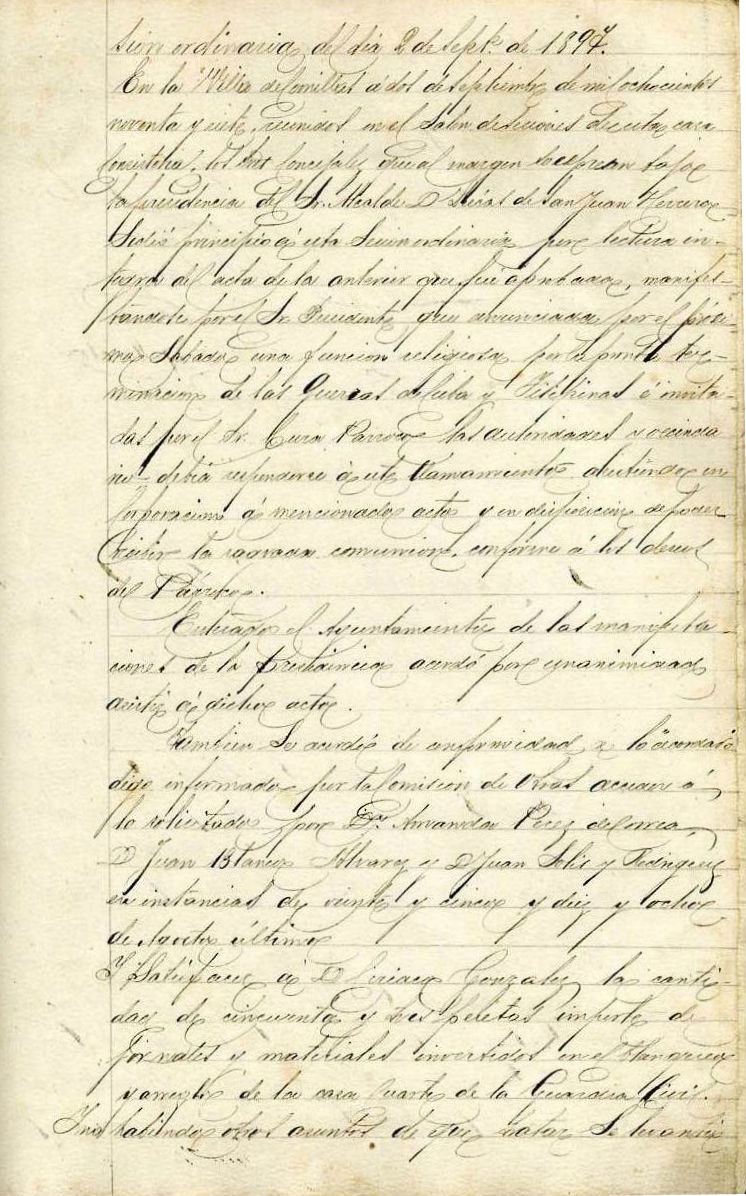 sion ordinaria del dia 2 de Septe. de 1897.
En la Villa de Comillas á dos de Septiembre de mil ochocientos
noventa y siete, reunidos en el Salon de Sesiones de esta casa
Consistorial, los Sres Concejales que al margen se espresan bajo
la presidencia del Sr. Alcalde D de San Juan Herrero.
Se dió principio á esta Sesion ordinaria por lectura in-
tegra del acta de la anterior que fué aprobada, manifes-
tandose por el Sr. Presidente que anunciada por el próxi-
mo Sabado una funcion religiosa por la pronta ter-
minacion de las Guerras de Cuba y Filipinas é invita-
das por el Sr. Cura Parroco las autoridades y vecinda
rio debia responderse á este llamamiento asistiendo en
Corporacion á mencionado acto y en disposicion de poder
recibir la sagrada comunion, conforme á los deseos
del Párroco.
Enterado el Ayuntamiento de las manifesta-
ciones de la presidencia acordó por unanimidad
asistir á dicho acto.
Tambien se acordó de conformidad a lo acordado
digo informado por la Comision de Obras acceder á
lo solicitado por Dª. Amanda Perez de Correa,
D Juan Blanco Alvarez y D Juan Solis y Rodriguez
en instancias de veinte y cinco y diez y ocho
de Agosto último
Y Satisfacer á D Ciriaco Gonzalez la canti-
dad de cincuenta y tres pesetas importe de
jornales y materiales invertidos en el blanqueo
y arreglo de la casa Cuartel de la Guardia Civil.
Y no habiendo otros asuntos de que tratar Se levantó